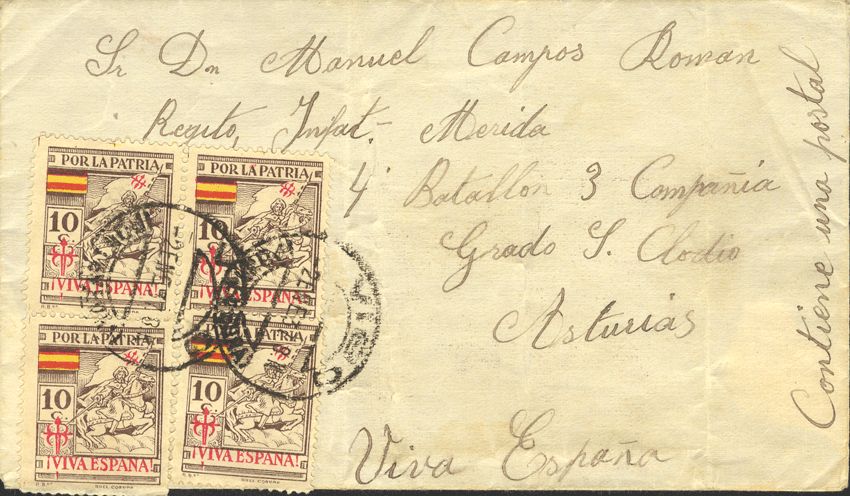 Sr Dn Manuel Campos Roman
Regito, Infat.- Merida
4º Batallon 3 Compañia
Grado S. Clodio
Asturias
Viva España
Contiene una postal
POR LA PATRIA
10
C.
¡VIVA ESPAÑA!
POR LA PATRIA
10
C.
¡VIVA ESPAÑA!
POR LA PATRIA
10
C.
¡VIVA ESPAÑA!
ROEL CORUÑA
POR LA PATRIA
10
C.
¡VIVA ESPAÑA!
ROEL CORUÑA